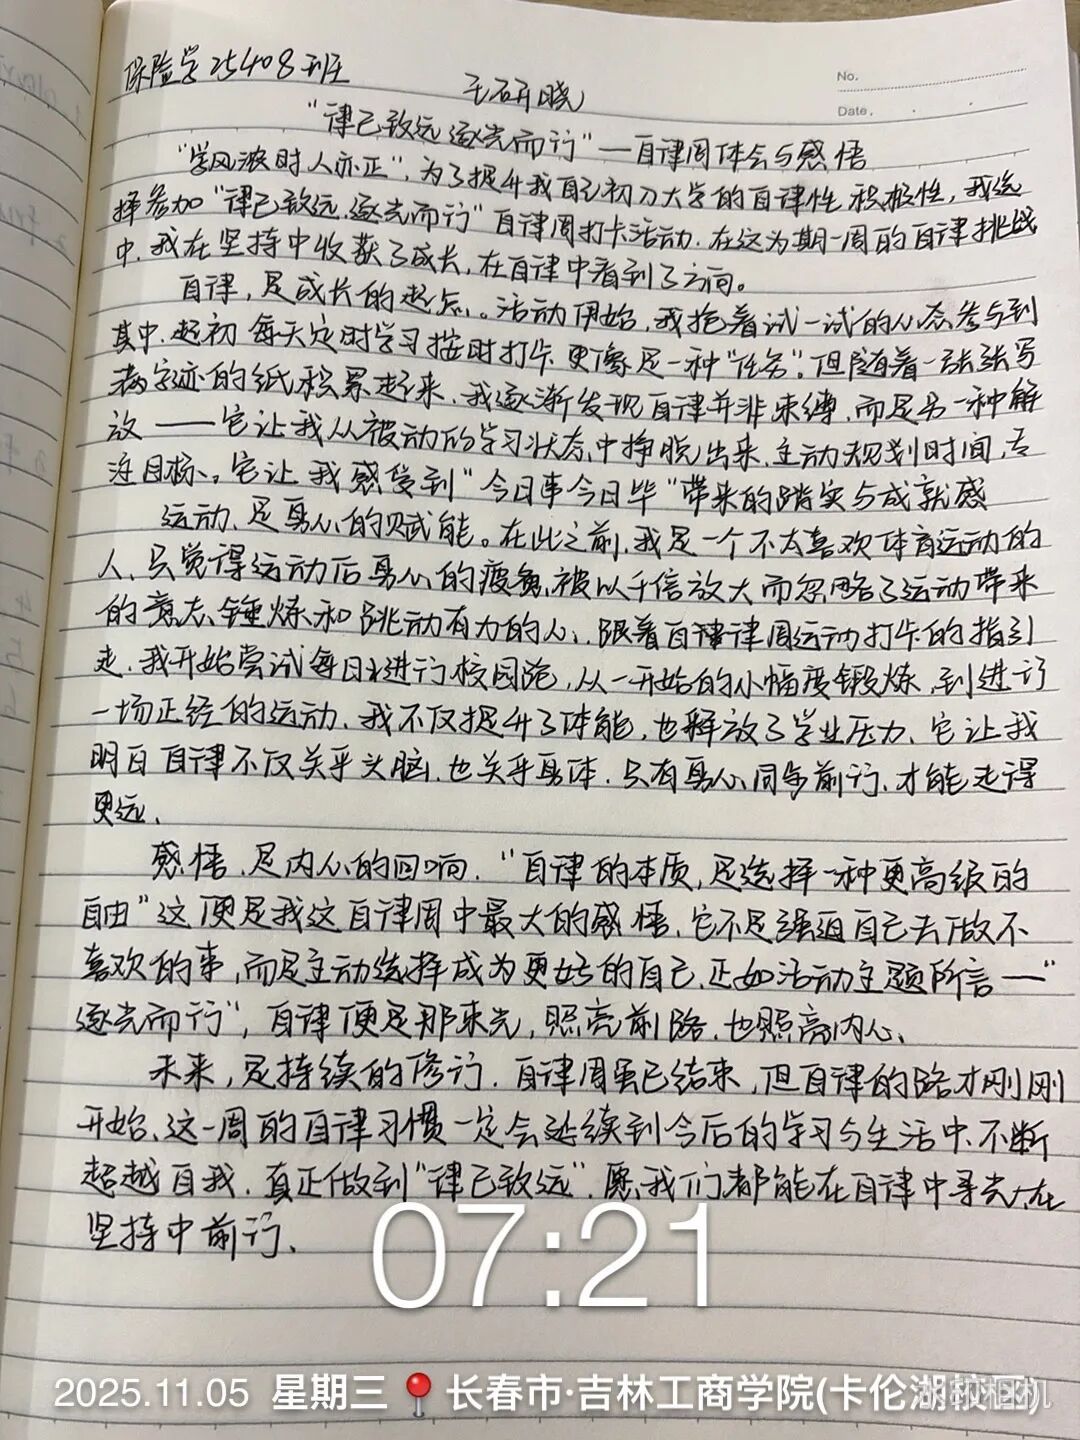 保险学25408班
No.
王研晓
Date.
“律己致远 逐光而行”—自律周体会与感悟
“学风浓时人亦正”，为了提升我自己初入大学的自律性 积极性，我选
择参加“律己致远，逐光而行”自律周打卡活动．在这为期一周的自律挑战
中，我在坚持中收获了成长，在自律中看到了方向。
自律，是成长的起点。活动伊始，我抱着试一试的心态参与到
其中．起初 每天定时学习 按时打卡 更像是一种“任务”．但随着一张张写
满字迹的纸积累起来，我逐渐发现自律并非束缚，而是另一种解
放——它让我从被动的学习状态中挣脱出来，主动规划时间，专
注目标。它让我感受到“今日事今日毕”带来的踏实与成就感
运动，是身心的赋能。在此之前，我是一个不太喜欢体育运动的
人，只觉得运动后身心的疲惫被以千倍放大而忽略了运动带来
的意志锤炼和跳动有力的心，跟着自律周运动打卡的指引
走，我开始尝试每日进行校园跑，从一开始的小幅度锻炼，到进行
一场正经的运动，我不仅提升了体能，也释放了学业压力，它让我
明白自律不仅关乎头脑，也关乎身体．只有身心同步前行，才能走得
更远．
感悟，是内心的回响．“自律的本质，是选择一种更高级的
自由”这便是我这自律周中最大的感悟，它不是强迫自己去做不
喜欢的事，而是主动选择成为更好的自己．正如活动主题所言—“
逐光而行”，自律便是那束光，照亮前路，也照亮内心．
未来，是持续的修行．自律周虽已结束，但自律的路才刚刚
开始，这一周的自律习惯一定会延续到今后的学习与生活中，不断
超越自我．真正做到“律己致远”．愿我们都能在自律中寻光，在
坚持中前行．
07:21
2025.11.05 星期三 长春市·吉林工商学院(卡伦湖校区)